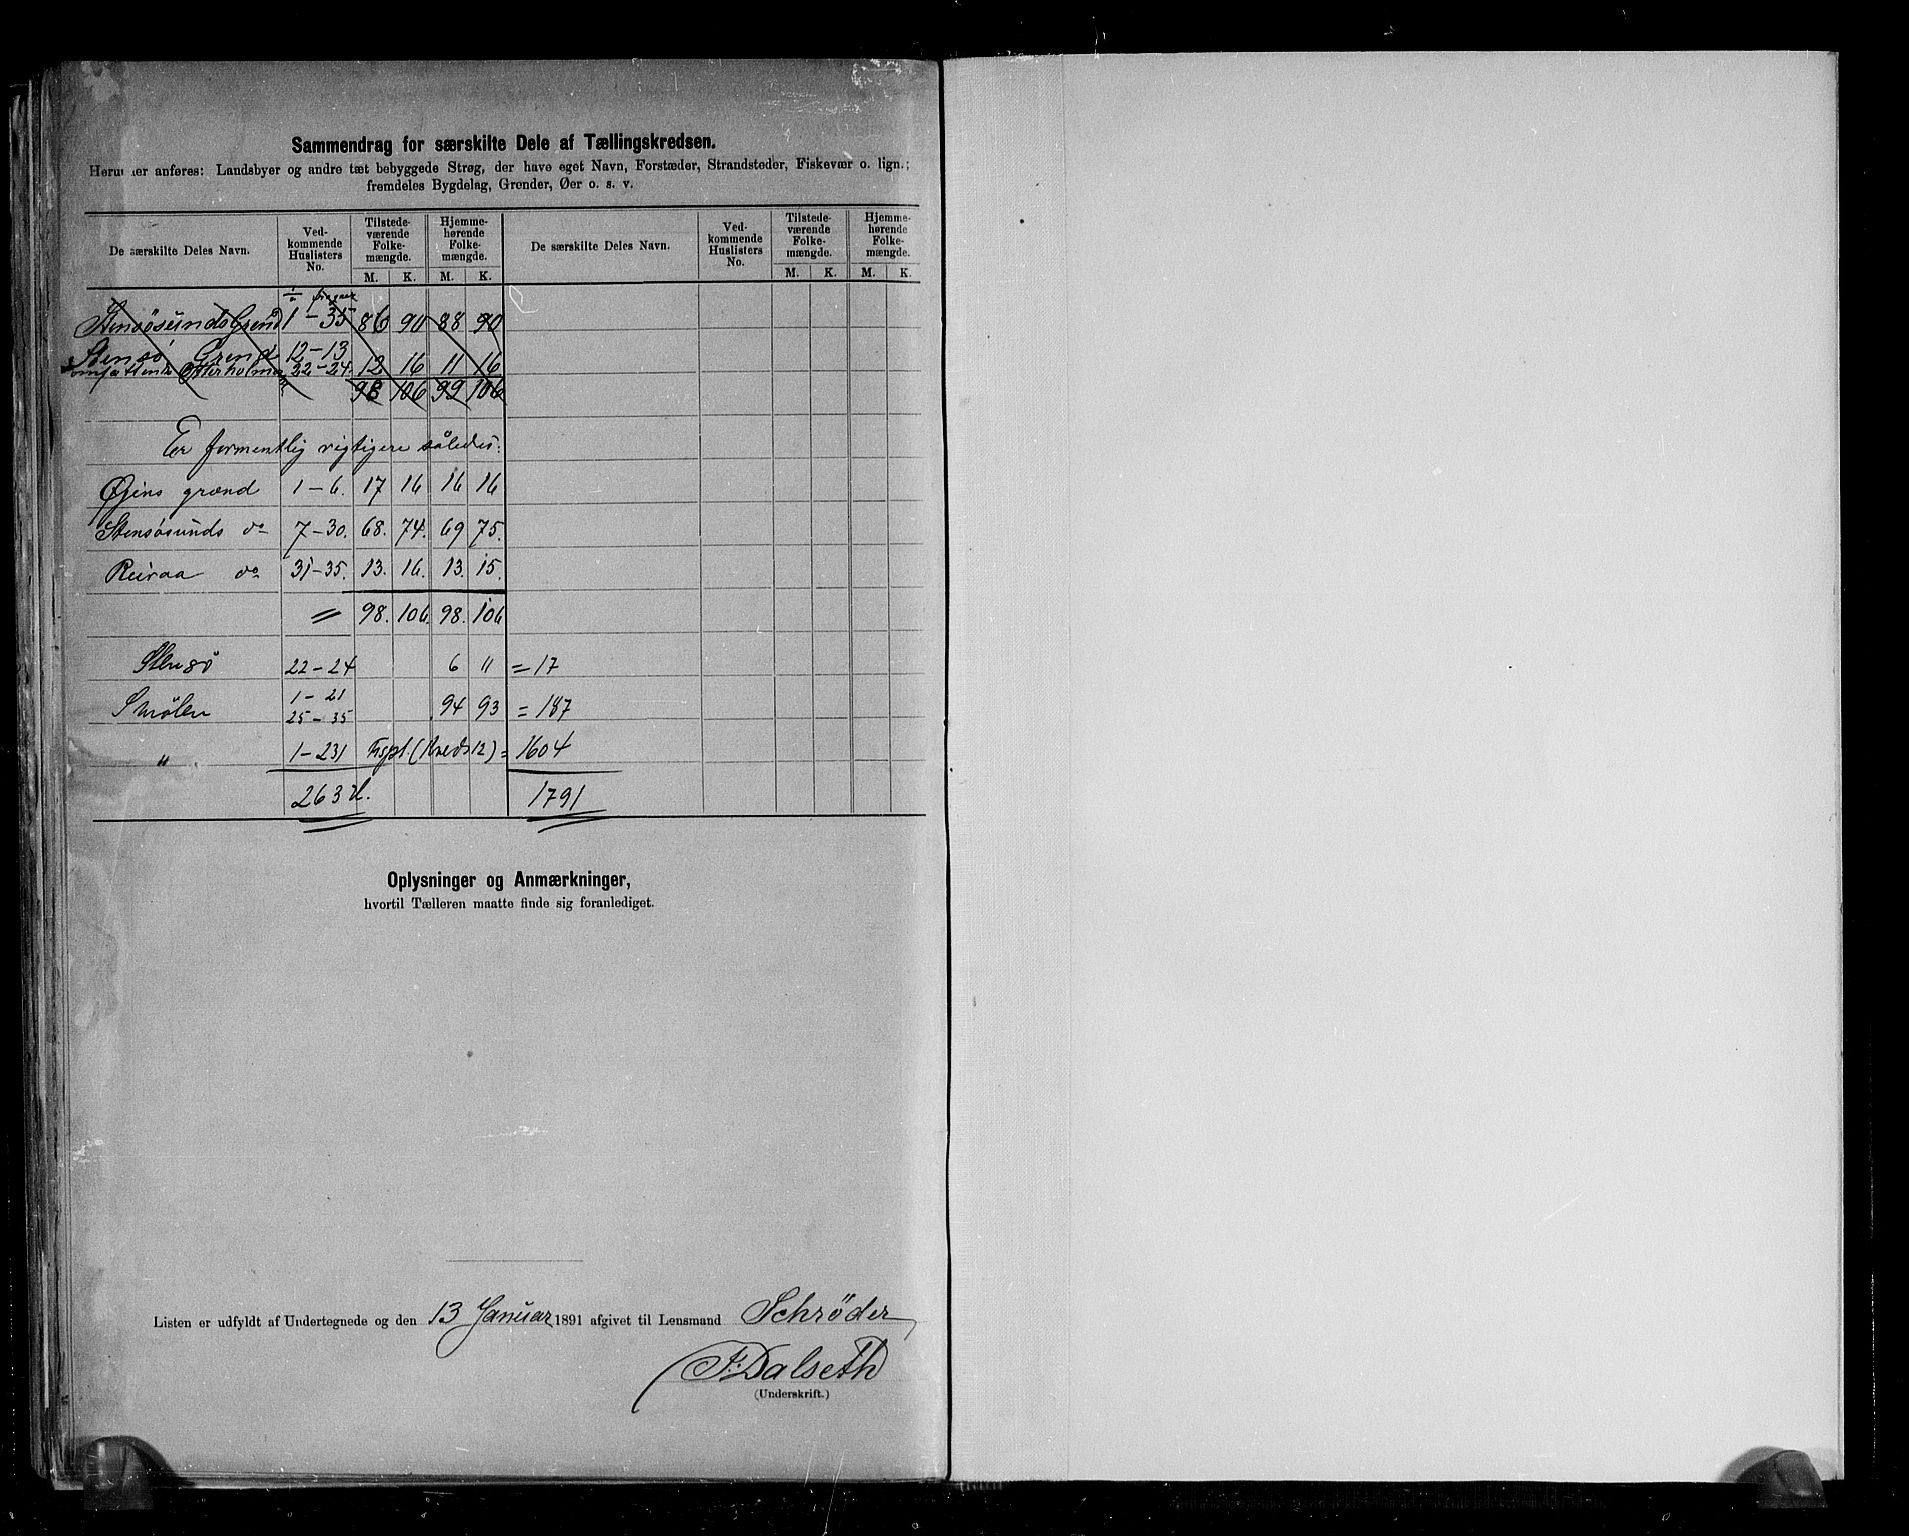 Sammendrag for særskilte Dele af Tællingskredsen.
Herunder anføres: Landsbyer og andre tæt bebyggede Strøg, der have eget Navn, Forstæder, Strandsteder, Fiskevær o. lign.;
fremdeles Bygdelag, Grender, Øer o. s. v.
De særskilte Deles Navn. Ved-kommende Huslisters No. Tilstede-værende Folke-mængde. M. K. Hjemme-hørende Folke-mængde. M. K. De særskilte Deles Navn. Ved-kommende Huslisters No. Tilstede-værende Folke-mængde. M. K. Hjemme-hørende Folke-mængde. M. K.
Stensøsunds Grend 1 – 35 86 90 88 90
Stensø Grend 12 – 13
22 – 24 12 16 11 16
98 106 99 106
Er formentlig rigtigere således:
Øiens grænd 1 – 6. 17 16 16 16
Stensøsunds do 7 – 30. 68. 74. 69 75.
Reiraa do 31 – 35. 13. 16. 13. 15.
" 98. 106. 98. 106
Stensø 22 – 24 6 11 = 17
Smølen 1 – 21
25 – 35 94 93 = 187
" 1 – 231 (Kreds 12) = 1604
263 H. 1791
Oplysninger og Anmærkninger,
hvortil Tælleren maatte finde sig foranlediget.
Listen er udfyldt af Undertegnede og den 13 Januar 1891 afgivet til Lensmand Schrøder
F. Dalseth
(Underskrift.)